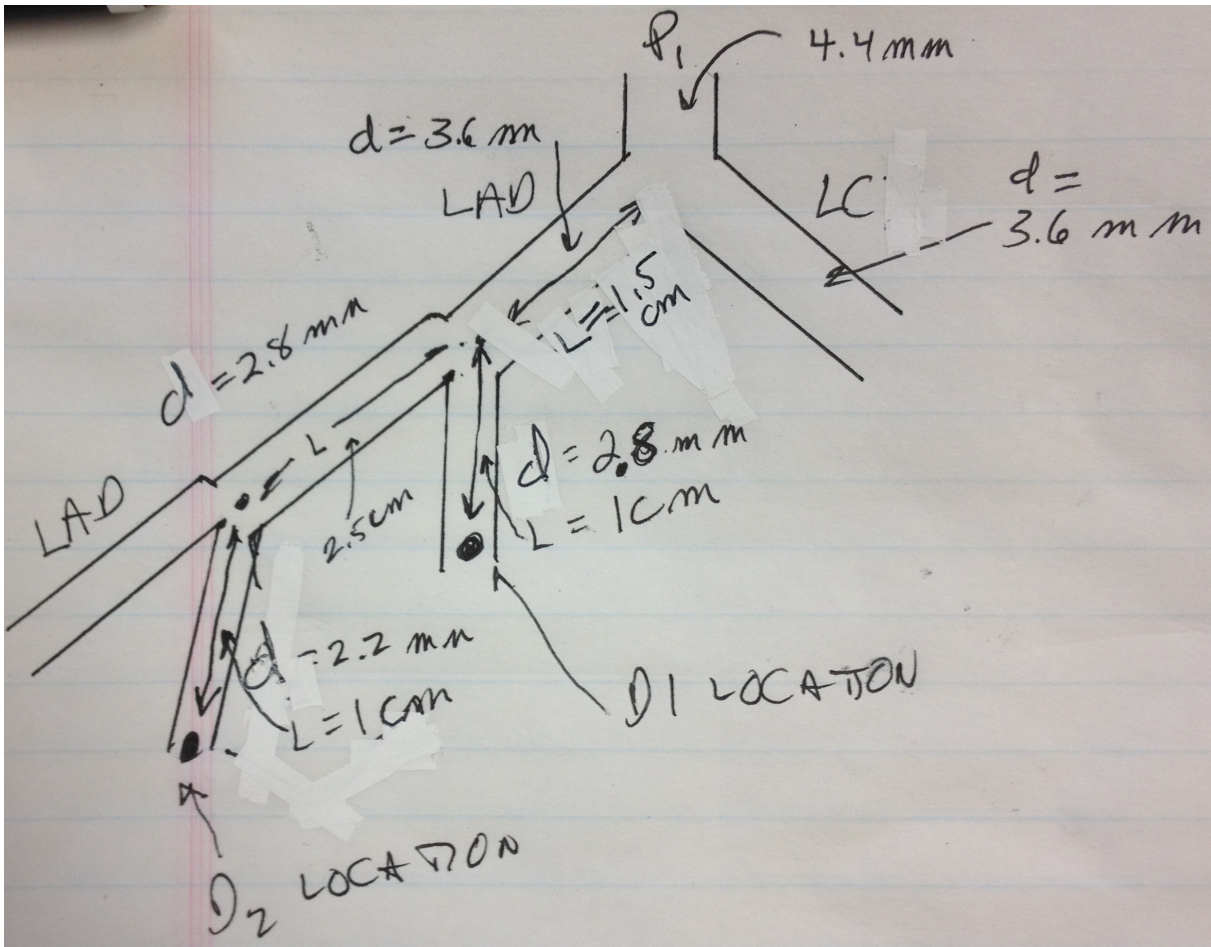 P₁
4.4 mm
d = 3.6 mm
LAD
LC
d =
3.6 mm
L = 1.5
cm
d = 2.8 mm
L
2.5cm
d = 2.8 mm
L = 1cm
LAD
d = 2.2 mm
L = 1cm
D1 LOCATION
D₂ LOCATION